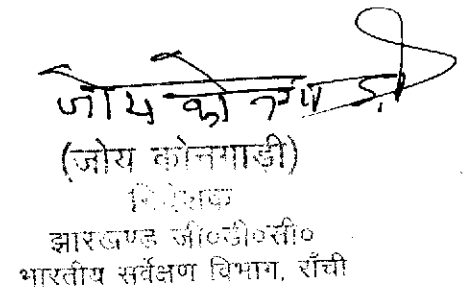 जोय कोनगाड़ी
(जोय कोनगाड़ी)
निदेशक
झारखण्ड जी०डी०सी०
भारतीय सर्वेक्षण विभाग, राँची